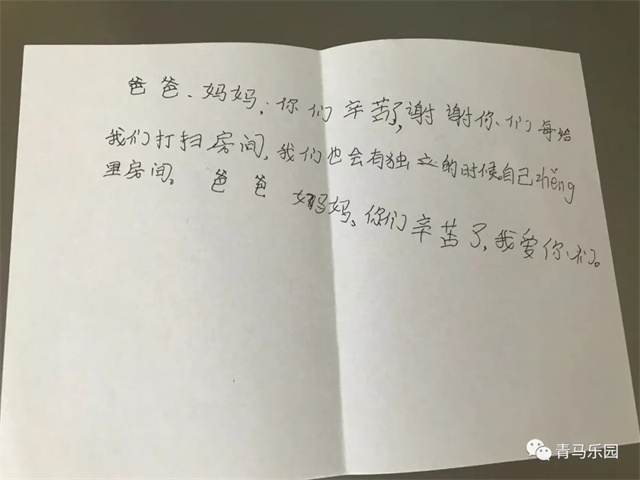 爸爸、妈妈,你们辛苦了,谢谢你们每给
我们打扫房间,我们也会有独立的时候自己zhěng
里房间。 爸爸 妈妈、你们辛苦了,我爱你们。
青马乐园